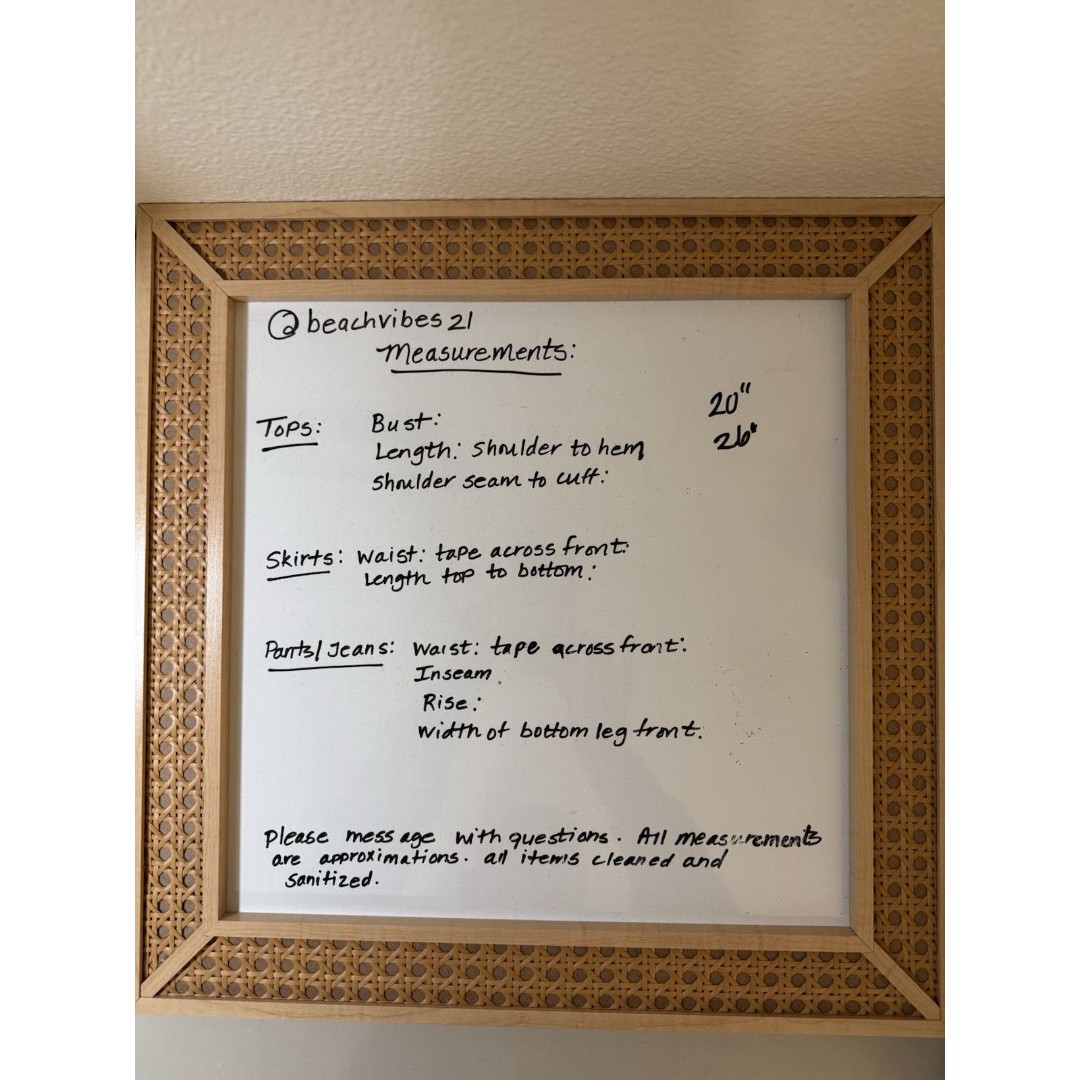 @beachvibes21
Measurements:
Tops: Bust: 20"
Length: Shoulder to hem 26"
Shoulder seam to cuff:
Skirts: Waist: tape across front:
Length top to bottom:
Pants/Jeans: Waist: tape across front:
Inseam.
Rise:
Width of bottom leg front.
Please message with questions. All measurements
are approximations. all items cleaned and
sanitized.